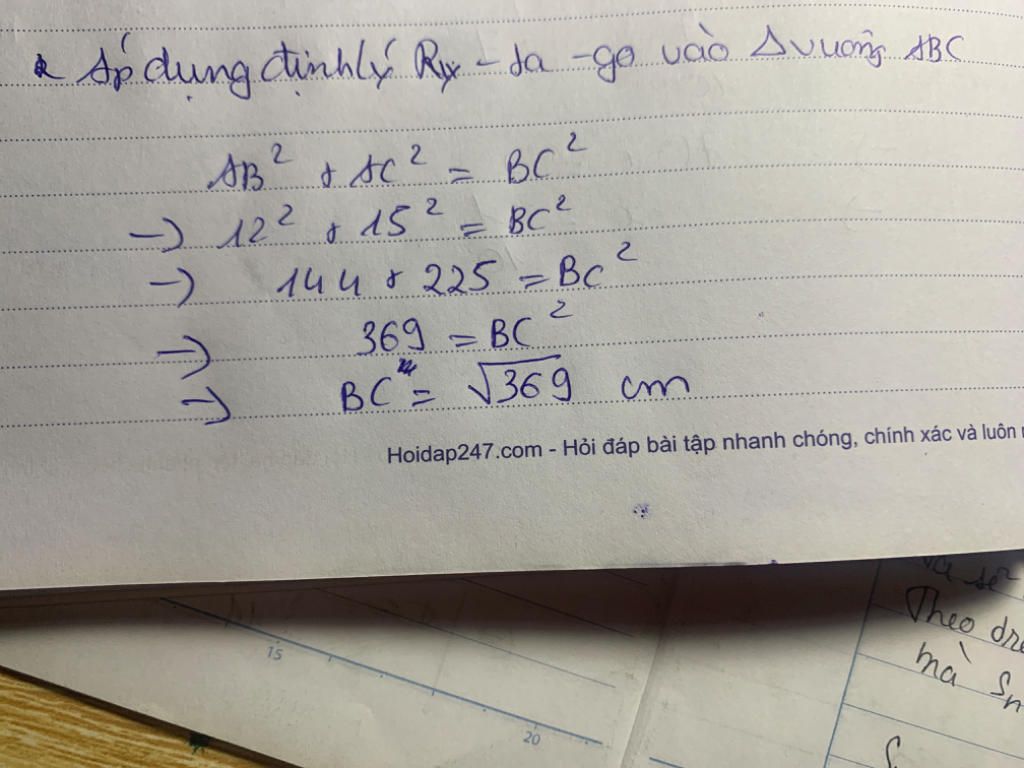 Áp dụng định lý Py-ta-go vào Δ vuông ABC
AB² + AC² = BC²
→ 12² + 15² = BC²
→ 144 + 225 = BC²
→ 369 = BC²
→ BC = √369 cm
Hoidap247.com - Hỏi đáp bài tập nhanh chóng, chính xác và luôn
15
20
Theo
mà Sn